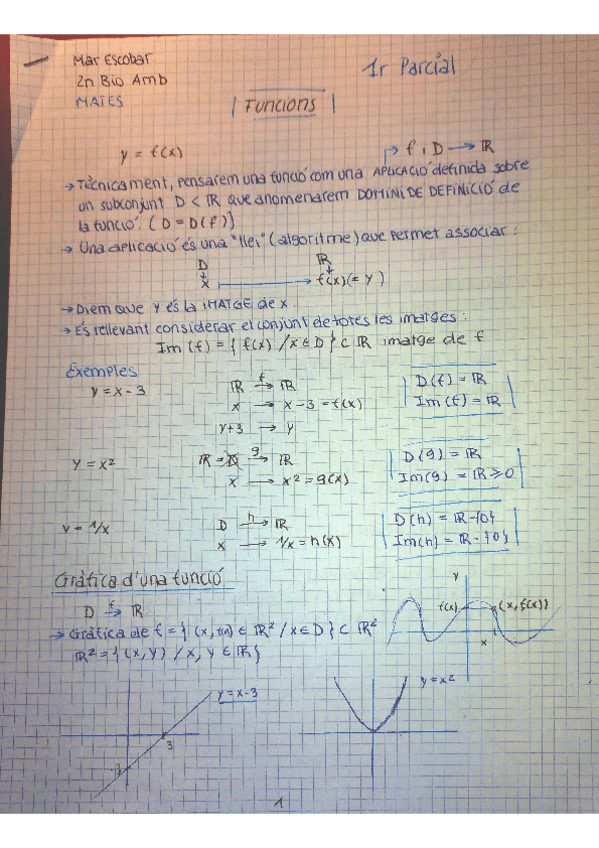 Mar Escobar
2n Bio Amb
MATES
1r Parcial
Funcions
y = f(x)
f: D → ℝ
→ Tècnicament, pensarem una funció com una APLICACIÓ definida sobre
un subconjunt D < ℝ que anomenarem DOMINI DE DEFINICIÓ de
la funció. (D = D(f))
→ Una aplicació és una "llei" (algoritme) que permet associar:
D ℝ
x → f(x)(= y)
→ Diem que y és la IMATGE de x.
→ És rellevant considerar el conjunt de totes les imatges:
Im (f) = { f(x) / x ∈ D } ⊂ ℝ imatge de f
Exemples
y = x - 3
ℝ f→ ℝ
x → x-3 = f(x)
y+3 → y
D(f) = ℝ
Im(f) = ℝ
y = x²
ℝ = D g→ ℝ
x → x² = g(x)
D(g) = ℝ
Im(g) = ℝ ≥ 0
y = 1/x
D h→ ℝ
x → 1/x = h(x)
D(h) = ℝ-{0}
Im(h) = ℝ-{0}
Gràfica d'una funció
D f→ ℝ
→ Gràfica de f = { (x, f(x)) ∈ ℝ² / x ∈ D } ⊂ ℝ²
ℝ² = { (x,y) / x, y ∈ ℝ }
y
f(x)
(x, f(x))
x
y = x-3
3
-3
y = x²
1